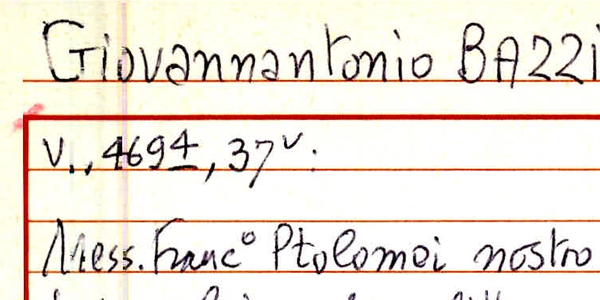 Giovannantonio BAZZi
V., 4694, 37v:
Mess. Franc° Ptolomei nostro